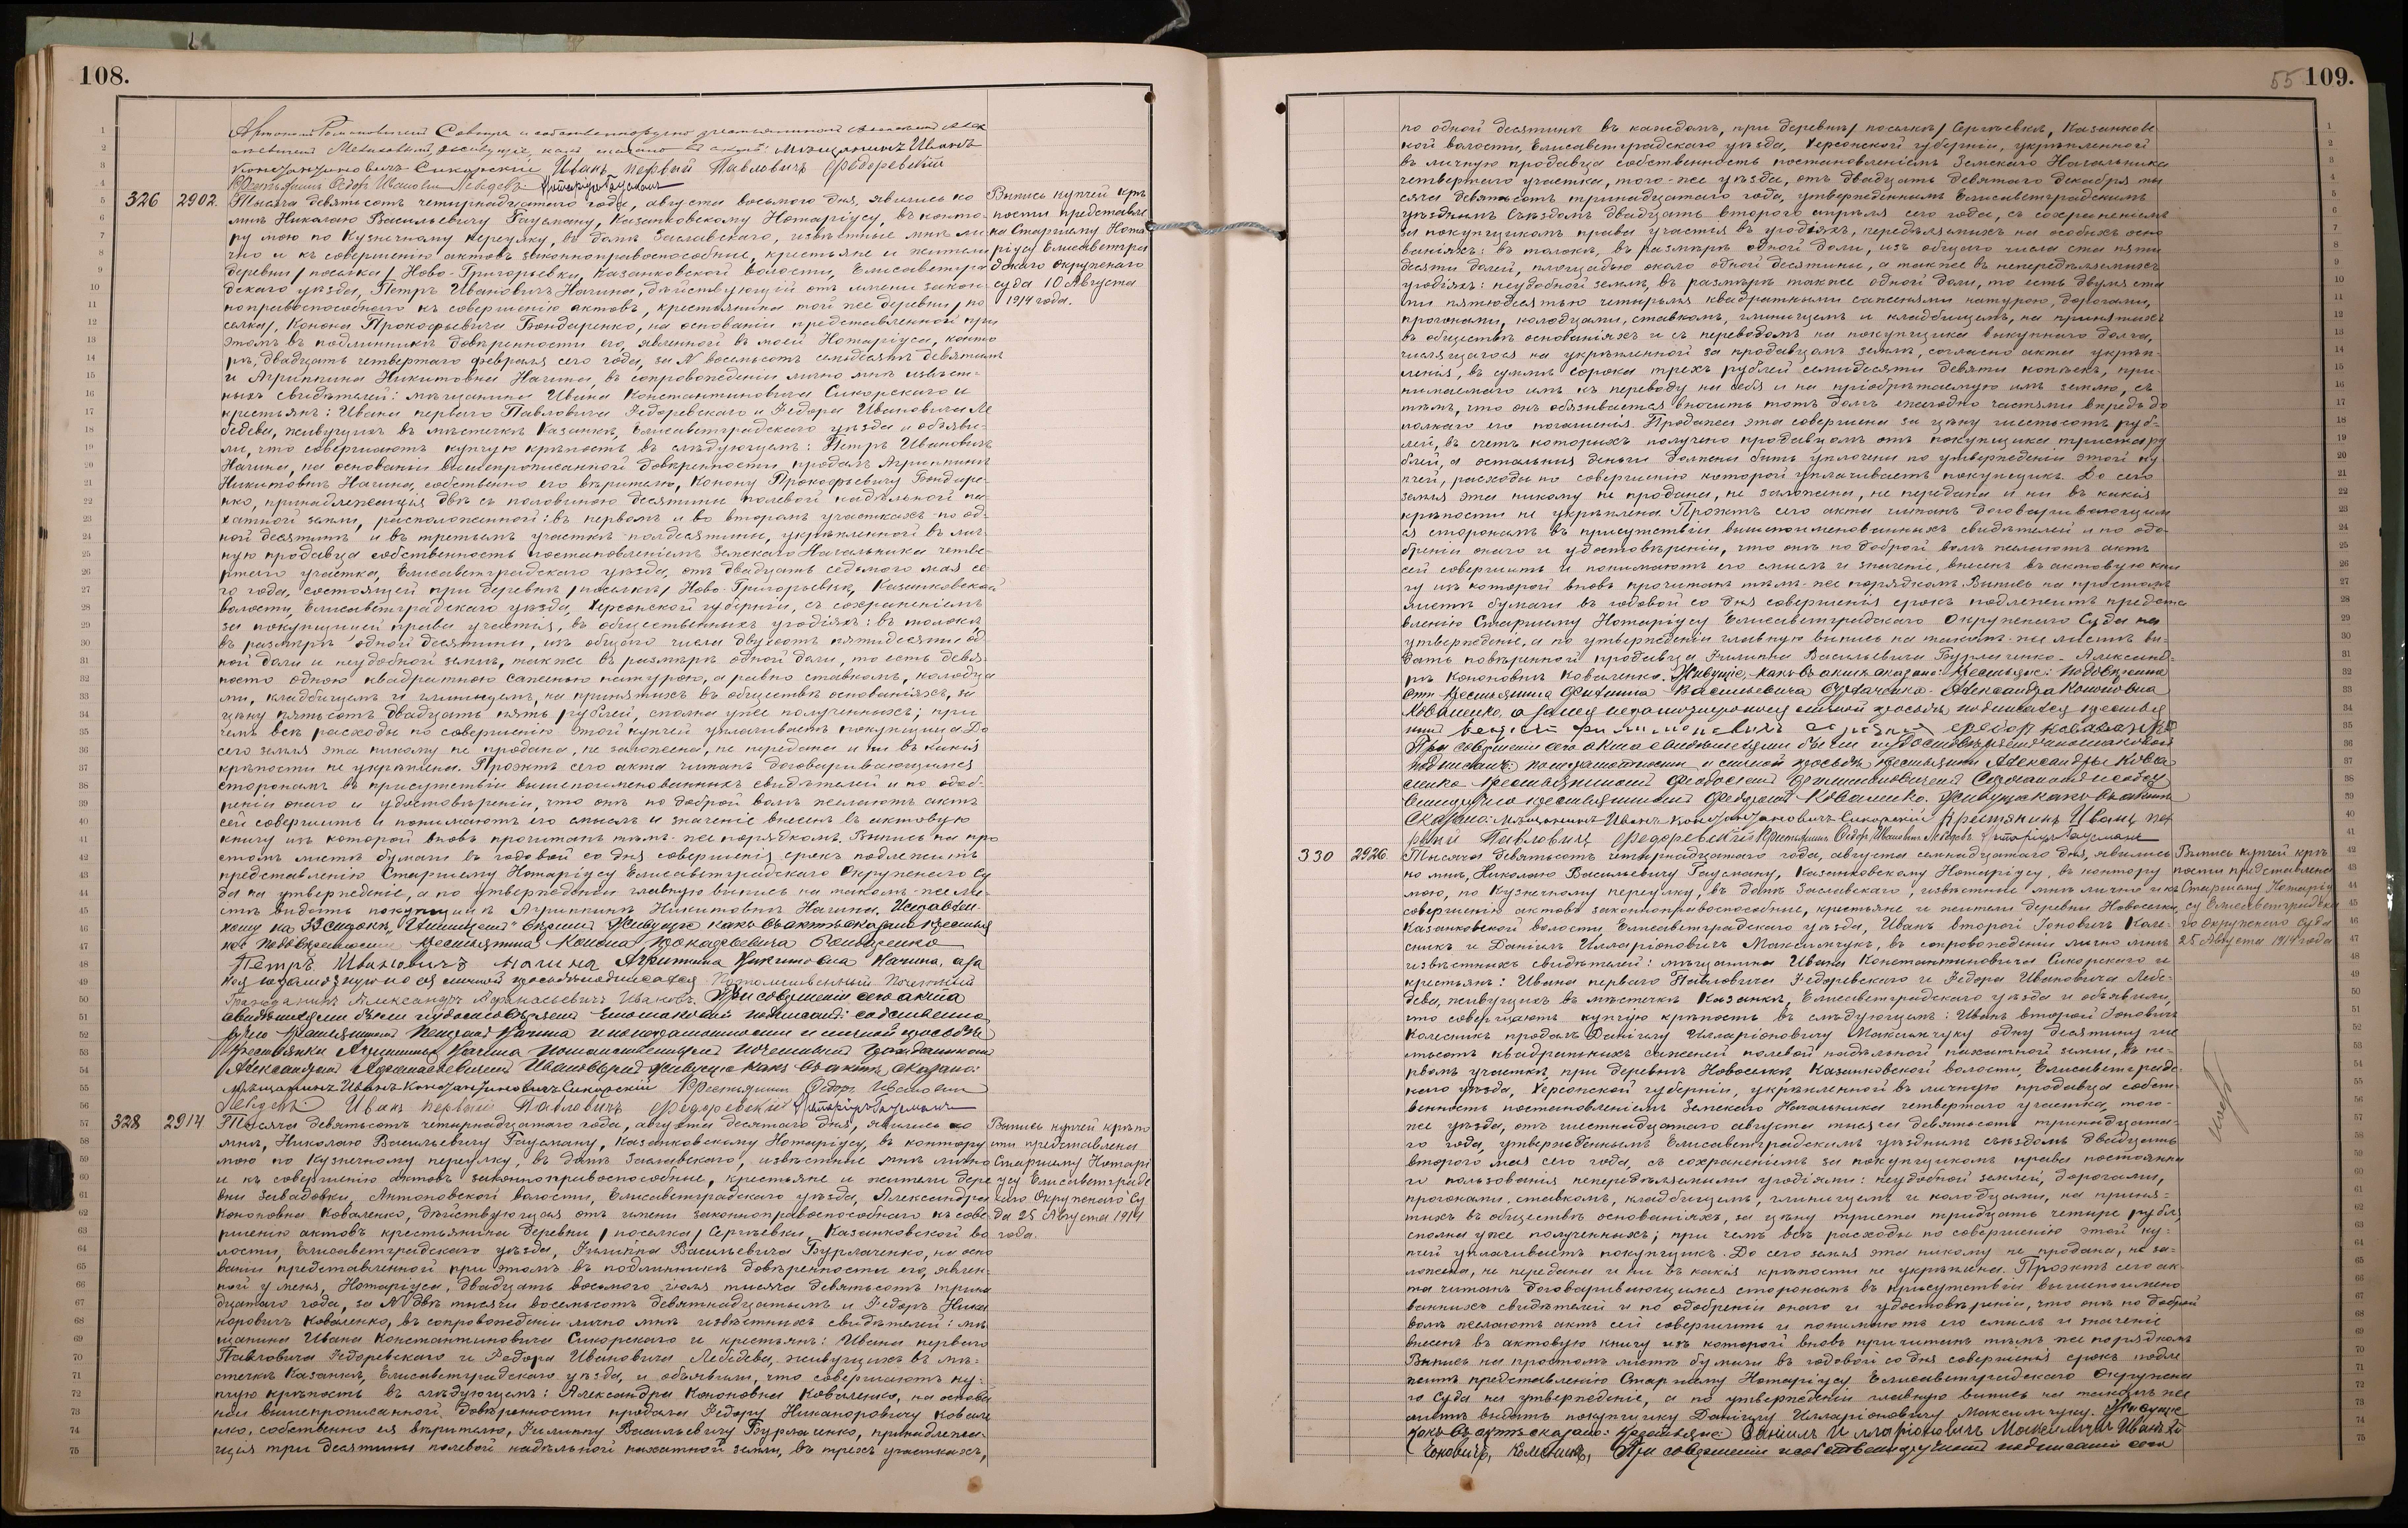 108.
Артемом Романовичем Савчра и собственноручно
Мещанинъ Иванъ
Константиновичъ Сикорскій Иванъ первый Павловичъ Федоревскій
Крестьянинъ Ѳедоръ Ивановъ Лебедевъ Нотаріусъ Гаусманъ
326 2902 Тысяча девятьсотъ четырнадцатаго года, августа восьмого дня, явились ко
мнѣ Николаю Васильевичу Гаусману, Казанковскому Нотаріусу, въ конто-
ру мою по Кузнечному переулку, въ домѣ Заславскаго, извѣстные мнѣ ли-
чно и къ совершенію актовъ законноправоспособные, крестьяне и жители
деревни /поселка/ Ново-Григорьевки, Казанковской волости, Елисаветгра
дскаго уѣзда, Петръ Ивановичъ Нагина, дѣйствующій отъ имени закон-
ноправоспособнаго къ совершенію актовъ, крестьянина той же деревни /по
селка/, Конона Прокофьевича Бондаренко, на основаніи представленной при
этомъ въ подлинникѣ довѣренности его, явленной въ моей Нотаріуса, конто
рѣ, двадцать четвертаго февраля сего года, за № восемьсотъ семьдесятъ девятымъ
и Агриппина Никитовна Нагина, въ сопровожденіи лично мнѣ извѣст-
ныхъ свидѣтелей: мѣщанина Ивана Константиновича Сикорскаго и
крестьянъ: Ивана перваго Павловича Федоревскаго и Федора Ивановича Ле
бедева, живущихъ въ мѣстечкѣ Казанкѣ, Елисаветградскаго уѣзда и объяви-
ли, что совершаютъ купчую крѣпость въ слѣдующемъ: Петръ Ивановичъ
Нагина, на основаніи вышепрописанной довѣренности продалъ Агриппинѣ
Никитовнѣ Нагина, собственно его вѣрителю, Конону Прокофьевичу Бондаре-
нко, принадлежащія двѣ съ половиною десятины полевой надѣльной па-
хатной земли, расположенной: въ первомъ и во второмъ участкахъ по од-
ной десятинѣ и въ третьемъ участкѣ полдесятины, укрѣпленной въ лич
ную продавца собственность постановленіемъ Земскаго Начальника четве-
ртаго участка, Елисаветградскаго уѣзда, отъ двадцать седьмого мая се-
го года, состоящей при деревнѣ /поселкѣ/ Ново-Григорьевкѣ, Казанковской
волости, Елисаветградскаго уѣзда, Херсонской губерніи, съ сохраненіемъ
за покупщицей права участія, въ общественныхъ угодіяхъ: въ толокѣ
въ размѣрѣ одной десятины, изъ общаго числа двухсотъ пятидесяти од-
ной доли и неудобной земли, также въ размѣрѣ одной доли, то есть девя-
носто одною квадратною саженью натурою, а равно ставкомъ, колодца
ми, кладбищемъ и глинищемъ, на принятыхъ въ обществѣ основаніяхъ, за
цѣну пятьсотъ двадцать пять рублей, сполна уже полученныхъ; при
чемъ всѣ расходы по совершенію этой купчей уплачиваетъ покупщица. До
сего земля эта никому не продана, не заложена, не передана и ни въ какія
крѣпости не укрѣплена. Проэктъ сего акта читанъ договаривающимся
сторонамъ въ присутствіи вышепоименованныхъ свидѣтелей и по одоб-
реніи онаго и удостовѣреніи, что онѣ по доброй волѣ желаютъ актъ
сей совершить и понимаютъ его смыслъ и значеніе внесенъ въ актовую
книгу изъ которой вновь прочитанъ тѣмъ-же порядкомъ. Выпись на про
стомъ листѣ бумаги въ годовой со дня совершенія срокъ подлежитъ
представленію Старшему Нотаріусу Елисаветградскаго Окружнаго Су
да на утвержденіе, а по утвержденіи главную выпись на такомъ-же ли-
стѣ выдать покупщицѣ Агриппинѣ Никитовнѣ Нагина.
Живущіе какъ въ актѣ сказано крестья
не: По довѣренности крестьянина Конона Прокофьевича Бондаренко
Петръ Ивановичъ Нагина Агриппина Никитовна Нагина, а за
нея неграмотную по ея личной просьбѣ подписался Потомственный Почетный
Гражданинъ Александръ Афанасьевичъ Ивановъ. При совершеніи сего акта
свидѣтелями были и удостовѣряемъ что таковой подписанъ: собственно
ручно крестьяниномъ Петромъ Нагина и по неграмотности и личной просьбѣ
крестьянки Агриппины Нагина Потомственнымъ Почетнымъ Гражданиномъ
Александромъ Афанасьевичемъ Ивановымъ живущіе какъ въ актѣ сказано:
Мѣщанинъ Иванъ Константиновичъ Сикорскій Крестьянинъ Ѳедоръ Ивановъ
Лебедевъ Иванъ первый Павловичъ Федоревскій Нотаріусъ Гаусманъ
Выпись купчей крѣ
пости представле
на Старшему Нота
ріусу Елисаветгра
дскаго Окружнаго
суда 10 Августа
1914 года.
328 2914 Тысяча девятьсотъ четырнадцатаго года, августа десятаго дня, явились ко
мнѣ, Николаю Васильевичу Гаусману, Казанковскому Нотаріусу, въ контору
мою по Кузнечному переулку, въ домѣ Заславскаго, извѣстные мнѣ лично
и къ совершенію актовъ законноправоспособные, крестьяне и жители дере
вни Завадовки, Антоновской волости, Елисаветградскаго уѣзда, Александра
Кононовна Коваленко, дѣйствующая отъ имени законноправоспособнаго къ сове-
ршенію актовъ крестьянина деревни /поселка/ Сергѣевки, Казанковской во
лости, Елисаветградскаго уѣзда, Филиппа Васильевича Бурлаченко, на осно
ваніи представленной при этомъ въ подлинникѣ довѣренности его, явлен-
ной у меня, Нотаріуса, двадцать восьмого іюля тысяча девятьсотъ трина
дцатаго года, за № двѣ тысячи восемьсотъ девятнадцатымъ и Федоръ Ника
норовичъ Коваленко, въ сопровожденіи лично мнѣ извѣстныхъ свидѣтелей: мѣ
щанина Ивана Константиновича Сикорскаго и крестьянъ: Ивана перваго
Павловича Федоревскаго и Федора Ивановича Лебедева, живущихъ въ мѣ-
стечкѣ Казанкѣ, Елисаветградскаго уѣзда, и объявили, что совершаютъ ку-
пчую крѣпость въ слѣдующемъ: Александра Кононовна Коваленко, на основа
ніи вышепрописанной довѣренности продала Федору Никаноровичу Ковале
нко, собственно ея вѣрителю, Филиппу Васильевичу Бурлаченко, принадлежа-
щія три десятины полевой надѣльной пахатной земли, въ трехъ участкахъ,
Выпись купчей крѣпо
сти представлена
Старшему Нотарі
усу Елисаветград
скаго Окружнаго Су
да 25 Августа 1914
года.
55 109.
по одной десятинѣ въ каждомъ, при деревнѣ /поселкѣ/ Сергѣевкѣ, Казанков
ской волости, Елисаветградскаго уѣзда, Херсонской губерніи, укрѣпленной
въ личную продавца собственность постановленіемъ Земскаго Начальника
четвертаго участка, того-же уѣзда, отъ двадцать девятаго декабря ты
сяча девятьсотъ тринадцатаго года, утвержденнымъ Елисаветградскимъ
уѣзднымъ съѣздомъ двадцать второго апрѣля сего года, съ сохраненіемъ
за покупщикомъ права участія въ угодіяхъ, передѣляемыхъ на особыхъ осно
ваніяхъ: въ толокѣ, въ размѣрѣ одной доли, изъ общаго числа ста пяти
десяти долей, площадью около одной десятины, а также въ непередѣляемыхъ
угодіяхъ: неудобной земли, въ размѣрѣ также одной доли, то есть двумя ста
ми пятьюдесятью четырьмя квадратными саженями натурою, дорогами,
прогонами, колодцами, ставкомъ, глинищемъ и кладбищемъ, на принятыхъ
въ обществѣ основаніяхъ и съ переводомъ на покупщика выкупнаго долга,
числящагося на укрѣпленной за продавцомъ землѣ, согласно акта укрѣп-
ленія, въ суммѣ сорока трехъ рублей семидесяти девяти копѣекъ, при-
нимаемаго имъ къ переводу на себя и на пріобрѣтаемую имъ землю, съ
тѣмъ, что онъ обязывается вносить тотъ долгъ ежегодно частями впредь до
полнаго его погашенія. Продажа эта совершена за цѣну шестьсотъ руб-
лей, въ счетъ которыхъ получено продавцомъ отъ покупщика триста ру
блей, а остальныя деньги должны быть уплочены по утвержденіи этой ку
пчей, расходы по совершенію которой уплачиваетъ покупщикъ. До сего
земля эта никому не продана, не заложена, не передана и ни въ какія
крѣпости не укрѣплена. Проэктъ сего акта читанъ договаривающим
ся сторонамъ въ присутствіи вышепоименованныхъ свидѣтелей и по одо-
бреніи онаго и удостовѣреніи, что онѣ по доброй волѣ желаютъ актъ
сей совершить и понимаютъ его смыслъ и значеніе, внесенъ въ актовую кни
гу изъ которой вновь прочитанъ тѣмъ-же порядкомъ. Выпись на простомъ
листѣ бумаги въ годовой со дня совершенія срокъ подлежитъ предста
вленію Старшему Нотаріусу Елисаветградскаго Окружнаго Суда на
утвержденіе, а по утвержденіи главную выпись на такомъ-же листѣ вы-
дать повѣренной продавца Филиппа Васильевича Бурлаченко - Александ-
рѣ Кононовнѣ Коваленко. Живущіе, какъ въ актѣ сказано: Крестьяне: По довѣренно
сти крестьянина Филиппа Васильевича Бурлаченко - Александра Кононовна
Коваленко, а за нея неграмотную по ея личной просьбѣ подписался крестья
нинъ Федор Коваленко
При совершеніи сего акта свидѣтелями были и удостовѣряемъ что таковой
подписанъ: по неграмотности и личной просьбѣ крестьянки Александры Кова
ленко крестьяниномъ
крестьяниномъ Федоромъ Коваленко. Живущіе какъ въ актѣ
сказано: Мѣщанинъ Иванъ Константиновичъ Сикорскій Крестьянинъ Иванъ пер
вый Павловичъ Федоревскій Крестьянинъ Ѳедоръ Ивановъ Лебедевъ Нотаріусъ Гаусманъ
330 2926 Тысяча девятьсотъ четырнадцатаго года, августа семнадцатаго дня, явились
ко мнѣ, Николаю Васильевичу Гаусману, Казанковскому Нотаріусу, въ контору
мою, по Кузнечному переулку, въ домѣ Заславскаго, извѣстные мнѣ лично и къ
совершенію актовъ законноправоспособные, крестьяне и жители деревни Новоселки,
Казанковской волости, Елисаветградскаго уѣзда, Иванъ второй Іоновичъ Коле-
сникъ и Даніилъ Илларіоновичъ Максимчукъ, въ сопровожденіи лично мнѣ
извѣстныхъ свидѣтелей: мѣщанина Ивана Константиновича Сикорскаго и
крестьянъ: Ивана перваго Павловича Федоревскаго и Федора Ивановича Лебе-
дева, живущихъ въ мѣстечкѣ Казанкѣ, Елисаветградскаго уѣзда и объявили,
что совершаютъ купчую крѣпость въ слѣдующемъ: Иванъ второй Іоновичъ
Колесникъ продалъ Даніилу Илларіоновичу Максимчуку одну десятину ше
стьсотъ квадратныхъ саженей полевой надѣльной пахатной земли, въ пе-
рвомъ участкѣ, при деревнѣ Новоселкѣ, Казанковской волости, Елисаветградс-
каго уѣзда, Херсонской губерніи, укрѣпленной въ личную продавца собст-
венность постановленіемъ Земскаго Начальника четвертаго участка, того-
же уѣзда, отъ шестнадцатаго августа тысяча девятьсотъ тринадцата-
го года, утвержденнымъ Елисаветградскимъ уѣзднымъ съѣздомъ двадцать
второго мая сего года, съ сохраненіемъ за покупщикомъ права постоянна
го пользованія непередѣляемыми угодіями: неудобной землей, дорогами,
прогонами, ставкомъ, кладбищемъ, глинищемъ и колодцами, на приня-
тыхъ въ обществѣ основаніяхъ, за цѣну триста тридцать четыре рубля,
сполна уже полученныхъ; при чемъ всѣ расходы по совершенію этой ку-
пчей уплачиваетъ покупщикъ. До сего земля эта никому не продана, не за-
ложена, не передана и ни въ какія крѣпости не укрѣплена. Проэктъ сего ак-
та читанъ договаривающимся сторонамъ въ присутствіи вышепоимено
ванныхъ свидѣтелей и по одобреніи онаго и удостовѣреніи, что онѣ по доброй
волѣ желаютъ актъ сей совершить и понимаютъ его смыслъ и значеніе
внесенъ въ актовую книгу изъ которой вновь прочитанъ тѣмъ же порядкомъ
Выпись на простомъ листѣ бумаги въ годовой со дня совершенія срокъ подле
житъ представленію Старшему Нотаріусу Елисаветградскаго Окружна
го Суда на утвержденіе, а по утвержденіи главную выпись на такомъ же
листѣ выдать покупщику Даніилу Илларіоновичу Максимчуку. Живущіе
какъ въ актѣ сказано: крестьяне Даніилъ Илларіоновичъ Максимчукъ Иванъ
Іоновичъ Колесникъ, При совершеніи и собственноручномъ подписаніи сего
Выпись купчей крѣ
пости представлена
Старшему Нотаріу
су Елисаветградска
го Окружнаго Суда
25 Августа 1914 года